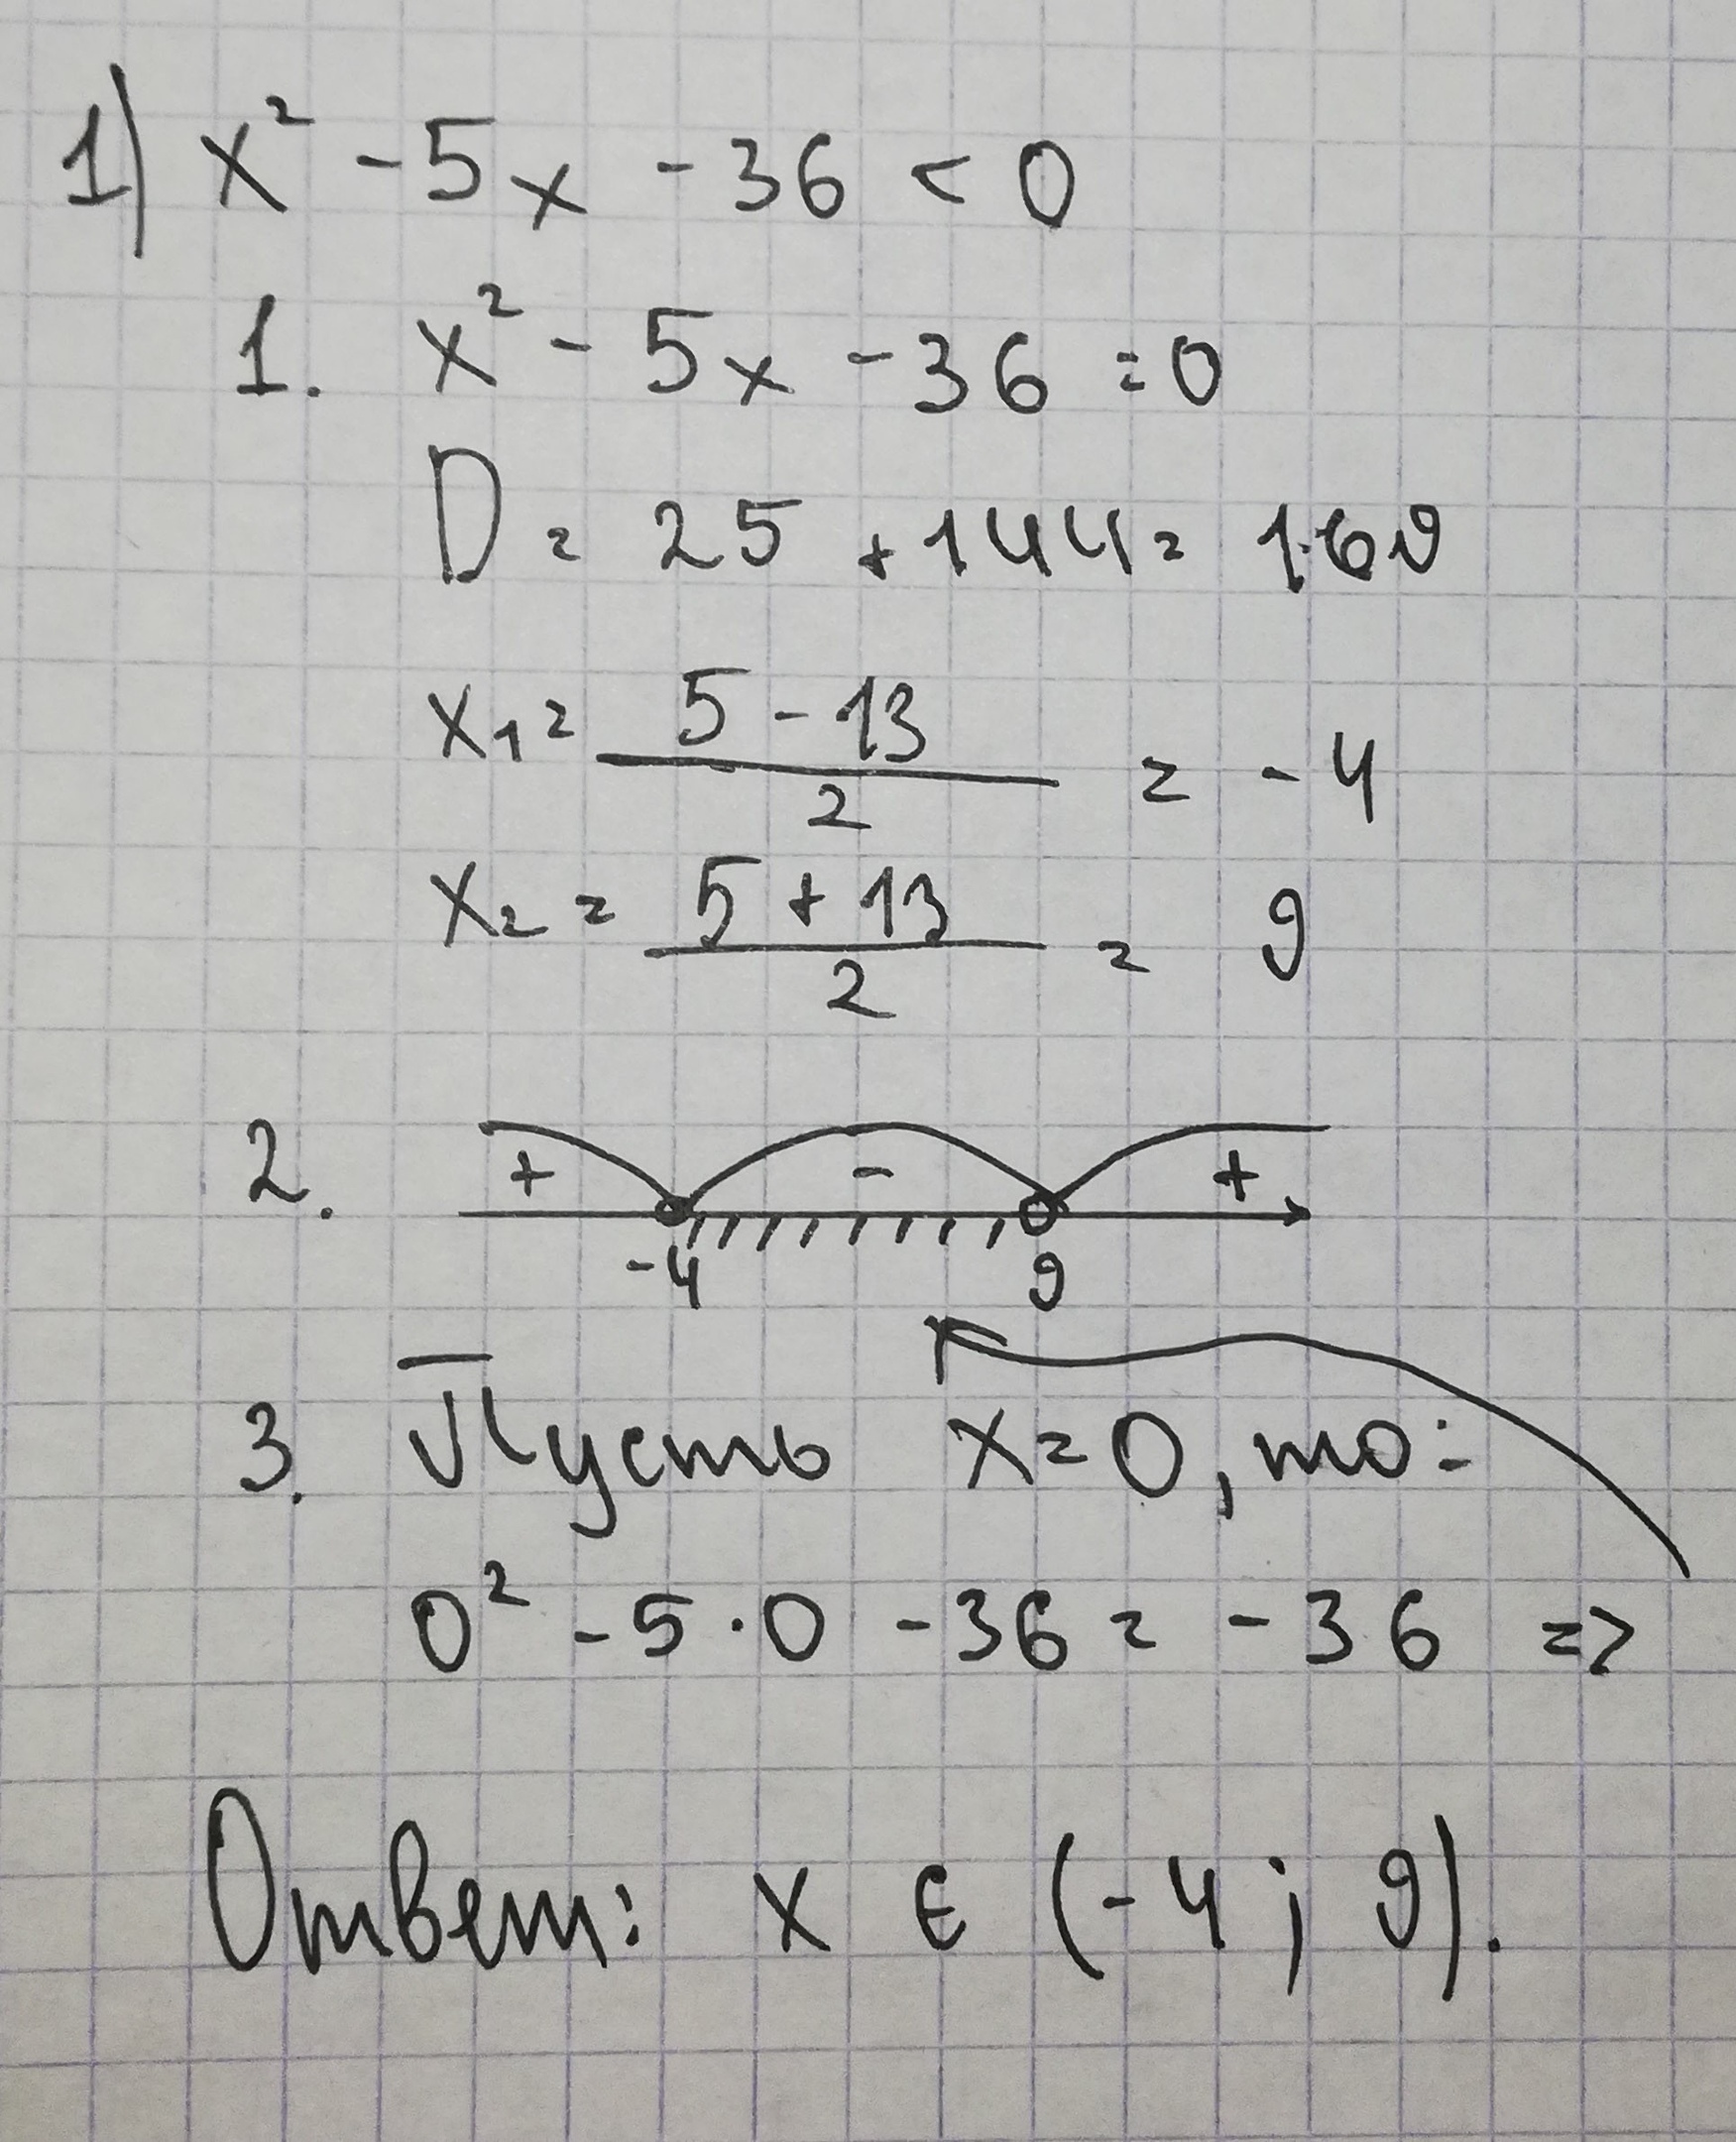 1) x² - 5x - 36 < 0
1. x² - 5x - 36 = 0
D = 25 + 144 = 169
x₁ = (5 - 13)/2 = -4
x₂ = (5 + 13)/2 = 9
2. + - +
-4 9
3. Пусть x = 0, то:
0² - 5 · 0 - 36 = -36 =>
Ответ: x ∈ (-4; 9).